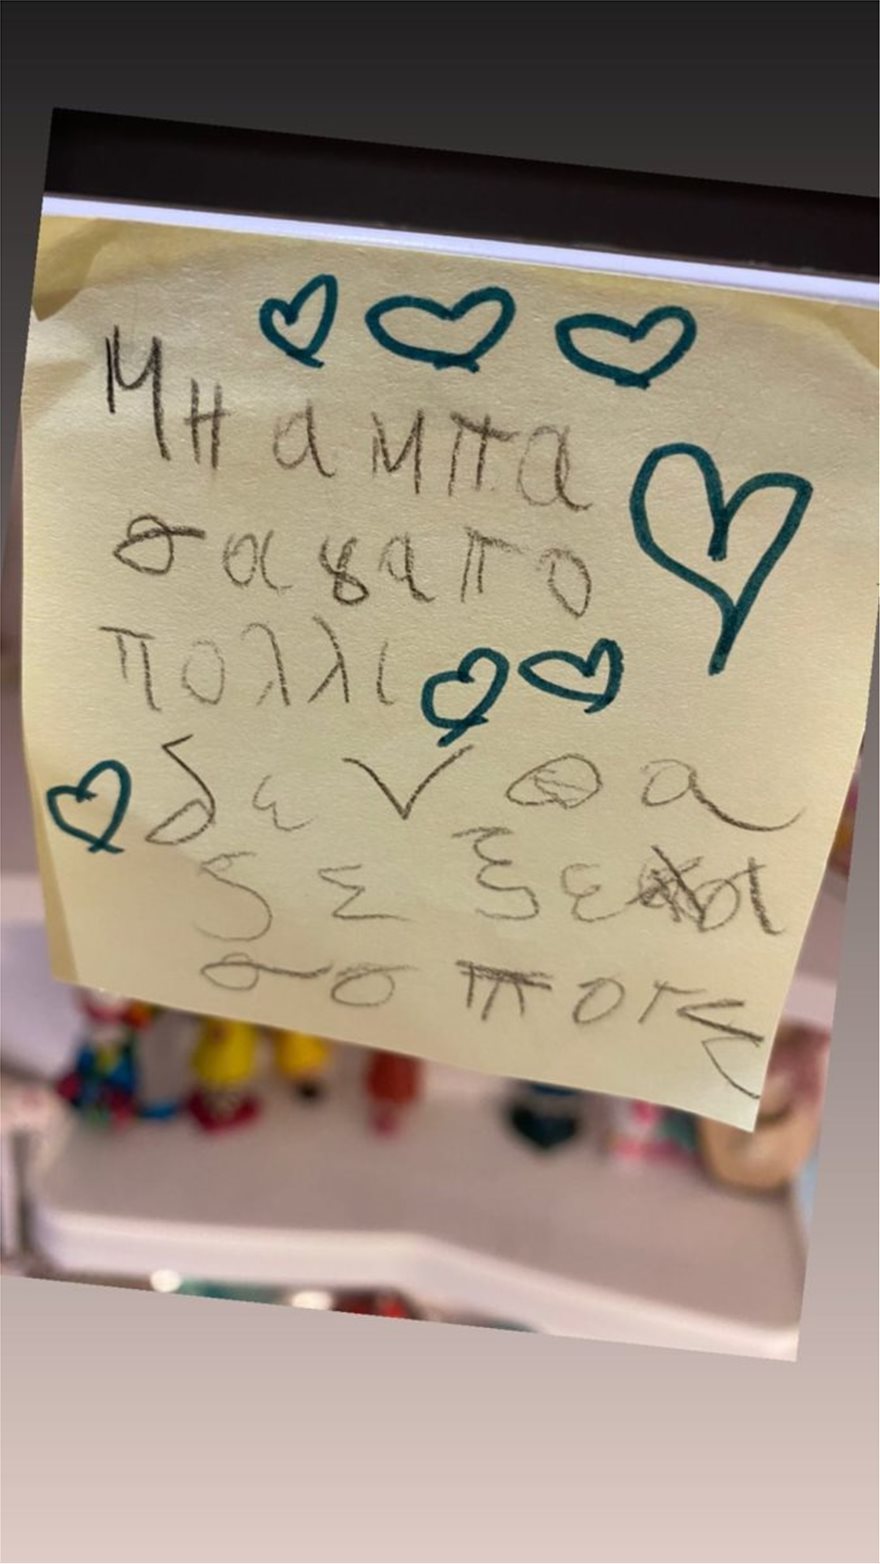 Μη αμπα
σαγαπο
πολλι
δεν θα
ςε ξεχα
σο ποτε